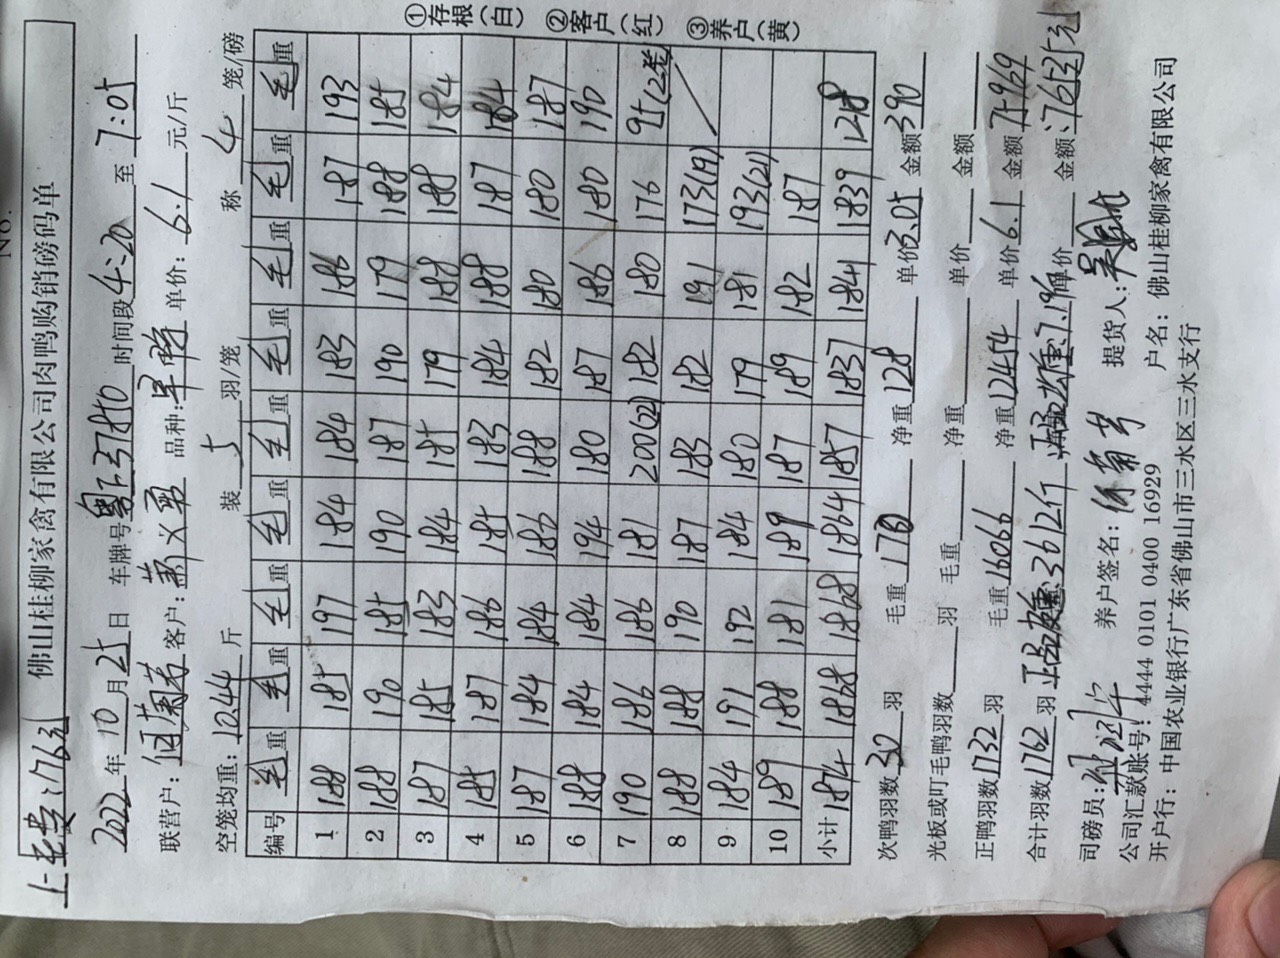 No.
上车费:176元
佛山桂柳家禽有限公司肉鸭购销磅码单
2022年10月25日 车牌号粤J37850 时间段4:20至7:05
联营户: 客户:萧义勇 品种: 单价:6.1元/斤
空笼均重:12.44斤 装5羽/笼 称4笼/磅
编号 毛重 毛重 毛重 毛重 毛重 毛重 毛重 毛重 毛重
1 188 185 197 184 184 183 186 187 193
2 188 190 185 190 187 190 179 188 185
3 187 185 183 184 185 179 188 188 184
4 185 187 186 185 183 184 188 187 184
5 187 184 184 186 188 182 180 180 187
6 188 184 184 194 180 187 186 180 190
7 190 186 186 181 200(22) 182 180 176 95(2笼
8 188 188 190 187 183 182 191 173(19)
9 184 191 192 184 180 179 181 193(21)
10 189 188 181 189 187 189 182 187
小计 1874 1868 1868 1864 1857 1837 1841 1839 1218
次鸭羽数30羽 毛重178 净重128 单价3.05 金额390
光板或叼毛鸭羽数 羽 毛重 净重 单价 金额
正鸭羽数1732羽 毛重16066 净重12454 单价6.1 金额75969
合计羽数1762羽 3612斤 7.19 单价 金额:76359元
司磅员: 养户签名: 提货人:
公司汇款账号:4444 0101 0400 16929 户名:佛山桂柳家禽有限公司
开户行:中国农业银行广东省佛山市三水区三水支行
①存根(白) ②客户(红) ③养户(黄)